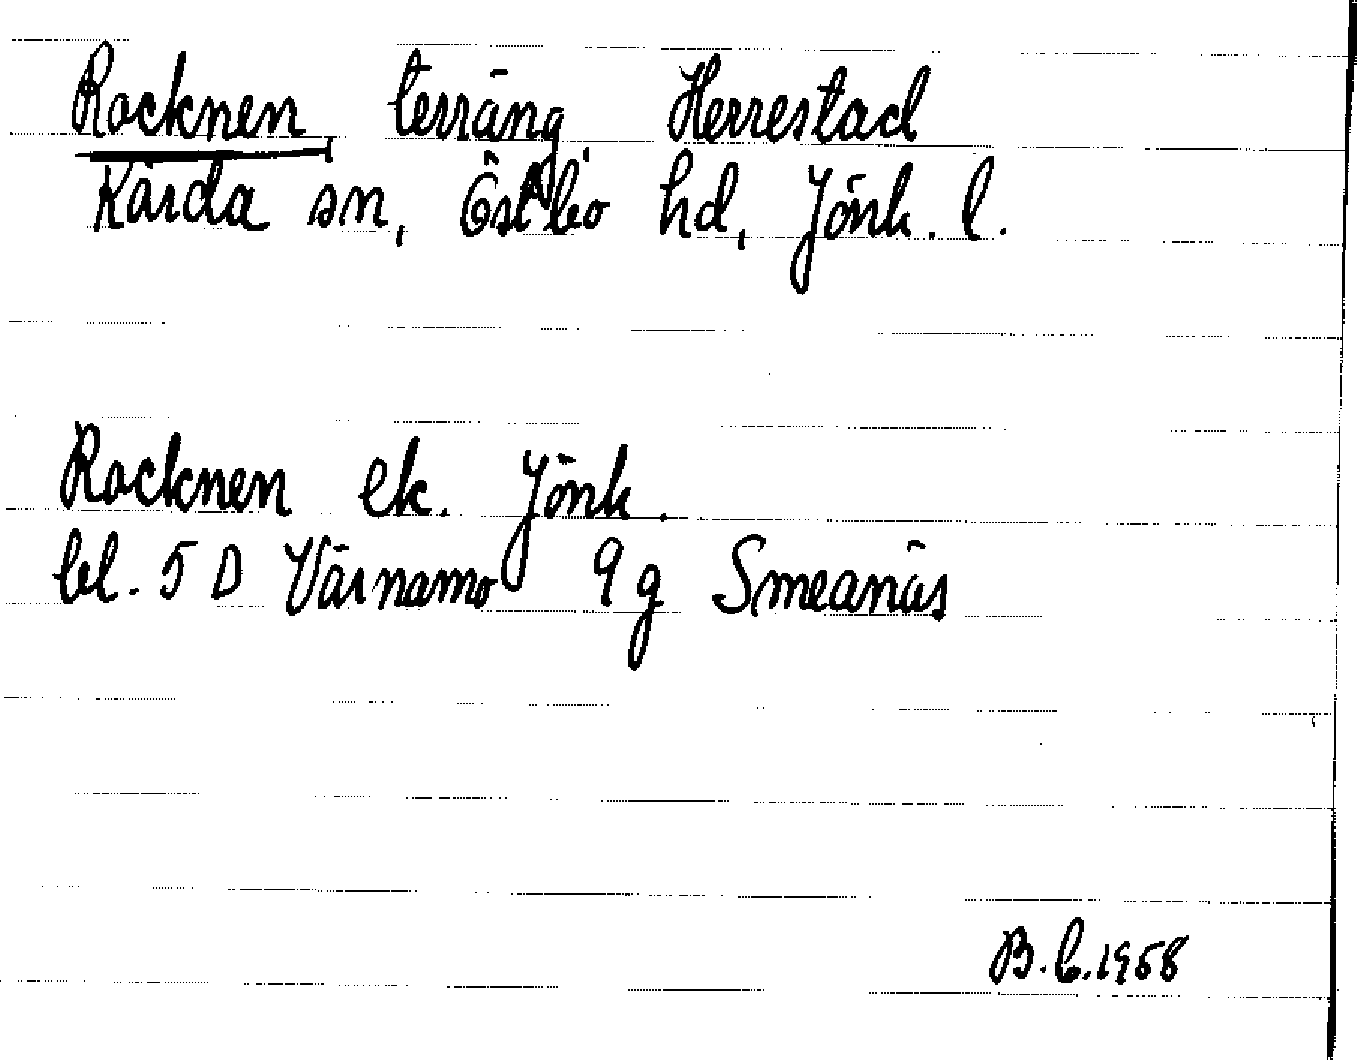 Rocknen terräng Herrestad
Kärda sn, Östbo hd, Jönk. l.
Rocknen ek. Jönk.
bl. 5 D Värnamo 9 g Smeanäs
B. C. 1958